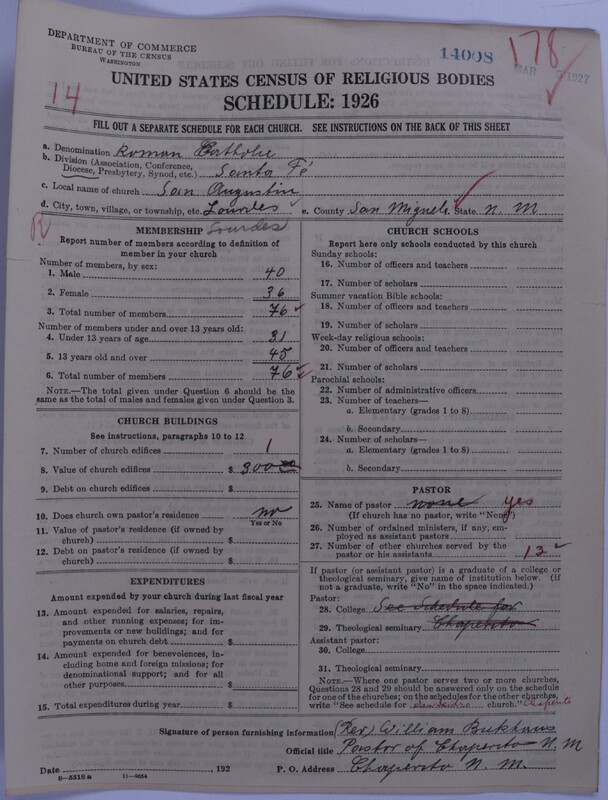 DEPARTMENT OF COMMERCE
BUREAU OF THE CENSUS
WASHINGTON
14008
178
MAR 1927
14
UNITED STATES CENSUS OF RELIGIOUS BODIES
SCHEDULE: 1926
FILL OUT A SEPARATE SCHEDULE FOR EACH CHURCH. SEE INSTRUCTIONS ON THE BACK OF THIS SHEET
a. Denomination Roman Catholic
b. Division (Association, Conference, Diocese, Presbytery, Synod, etc.) Santa Fé
c. Local name of church San Augustin
d. City, town, village, or township, etc. Lourdes e. County San Miguel State N. M
R
Lourdes
MEMBERSHIP
Report number of members according to definition of
member in your church
Number of members, by sex:
1. Male 40
2. Female 36
3. Total number of members 76
Number of members under and over 13 years old:
4. Under 13 years of age 31
5. 13 years old and over 45
6. Total number of members 76
NOTE.—The total given under Question 6 should be
same as the total of males and females given under Question 3.
CHURCH BUILDINGS
See instructions, paragraphs 10 to 12
7. Number of church edifices 1
8. Value of church edifices $ 300
9. Debt on church edifices $
10. Does church own pastor's residence no
Yes or No
11. Value of pastor's residence (if owned by
church) $
12. Debt on pastor's residence (if owned by
church) $
EXPENDITURES
Amount expended by your church during last fiscal year
13. Amount expended for salaries, repairs,
and other running expenses; for im-
provements or new buildings; and for
payments on church debt $
14. Amount expended for benevolences, in-
cluding home and foreign missions; for
denominational support; and for all
other purposes $
15. Total expenditures during year $
CHURCH SCHOOLS
Report here only schools conducted by this church
Sunday schools:
16. Number of officers and teachers
17. Number of scholars
Summer vacation Bible schools:
18. Number of officers and teachers
19. Number of scholars
Week-day religious schools:
20. Number of officers and teachers
21. Number of scholars
Parochial schools:
22. Number of administrative officers
23. Number of teachers—
a. Elementary (grades 1 to 8)
b. Secondary
24. Number of scholars—
a. Elementary (grades 1 to 8)
b. Secondary
PASTOR
25. Name of pastor none yes
(If church has no pastor, write "None")
26. Number of ordained ministers, if any, em-
ployed as assistant pastors
27. Number of other churches served by the
pastor or his assistants 13
If pastor (or assistant pastor) is a graduate of a college or
theological seminary, give name of institution below. (If
not a graduate, write "No" in the space indicated.)
Pastor:
28. College See Schedule for
29. Theological seminary Chaperito
Assistant pastor:
30. College
31. Theological seminary
NOTE.—Where one pastor serves two or more churches,
Questions 28 and 29 should be answered only on the schedule
for one of the churches; on the schedules for the other churches,
write "See schedule for San Isidro church." Chaperito
Signature of person furnishing information (Rev.) William
Official title Pastor of Chaperito N. M
Date , 192 P. O. Address Chaperito N. M.
B—5318 a 11—9654